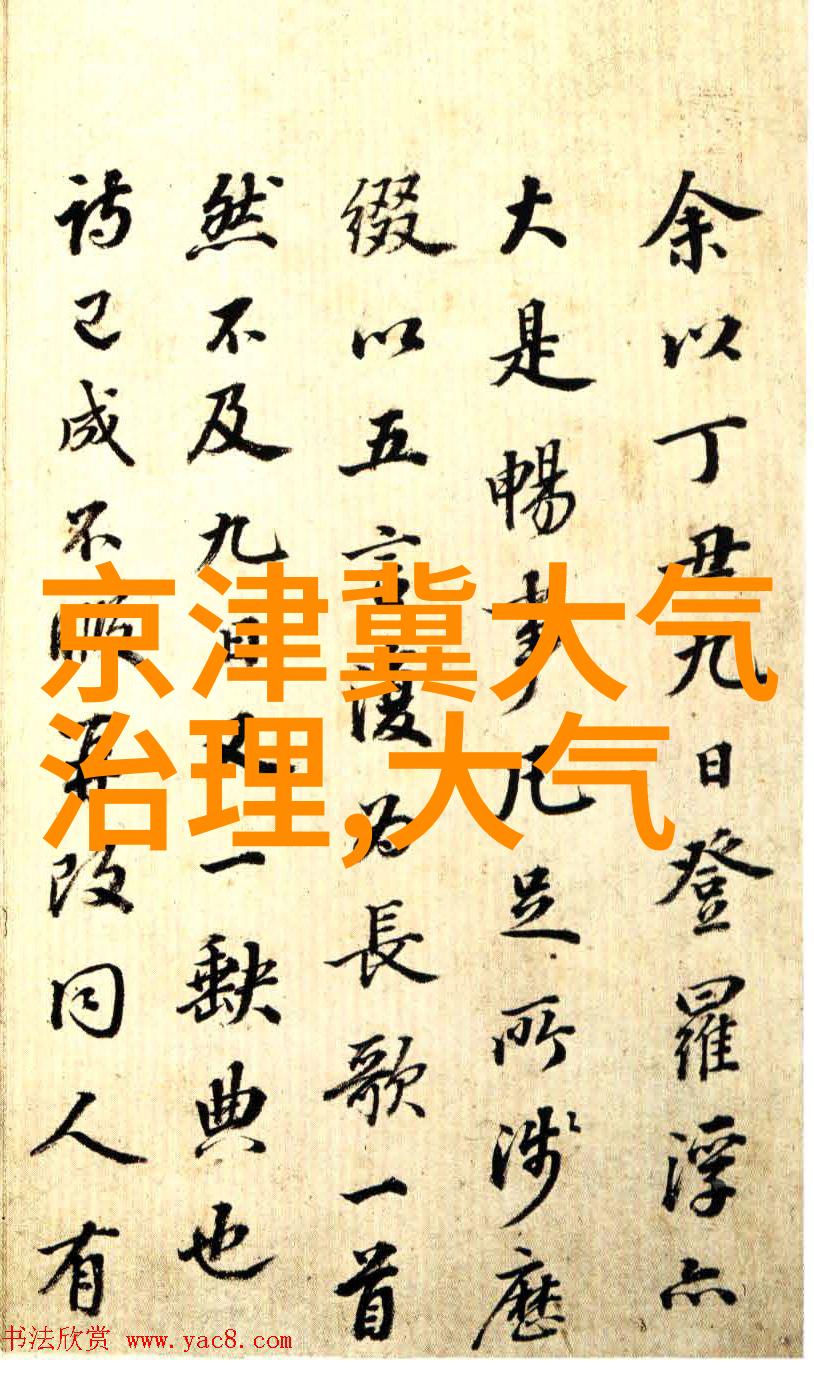 余以丁丑九日登羅浮亦
大是暢事凡足所涉歷
綴以五言復為長歌一首
然不及九日又一缺典也
詩已成不暇再改同人有
京津冀大气
治理,大气
书法欣赏 www.yac8.com